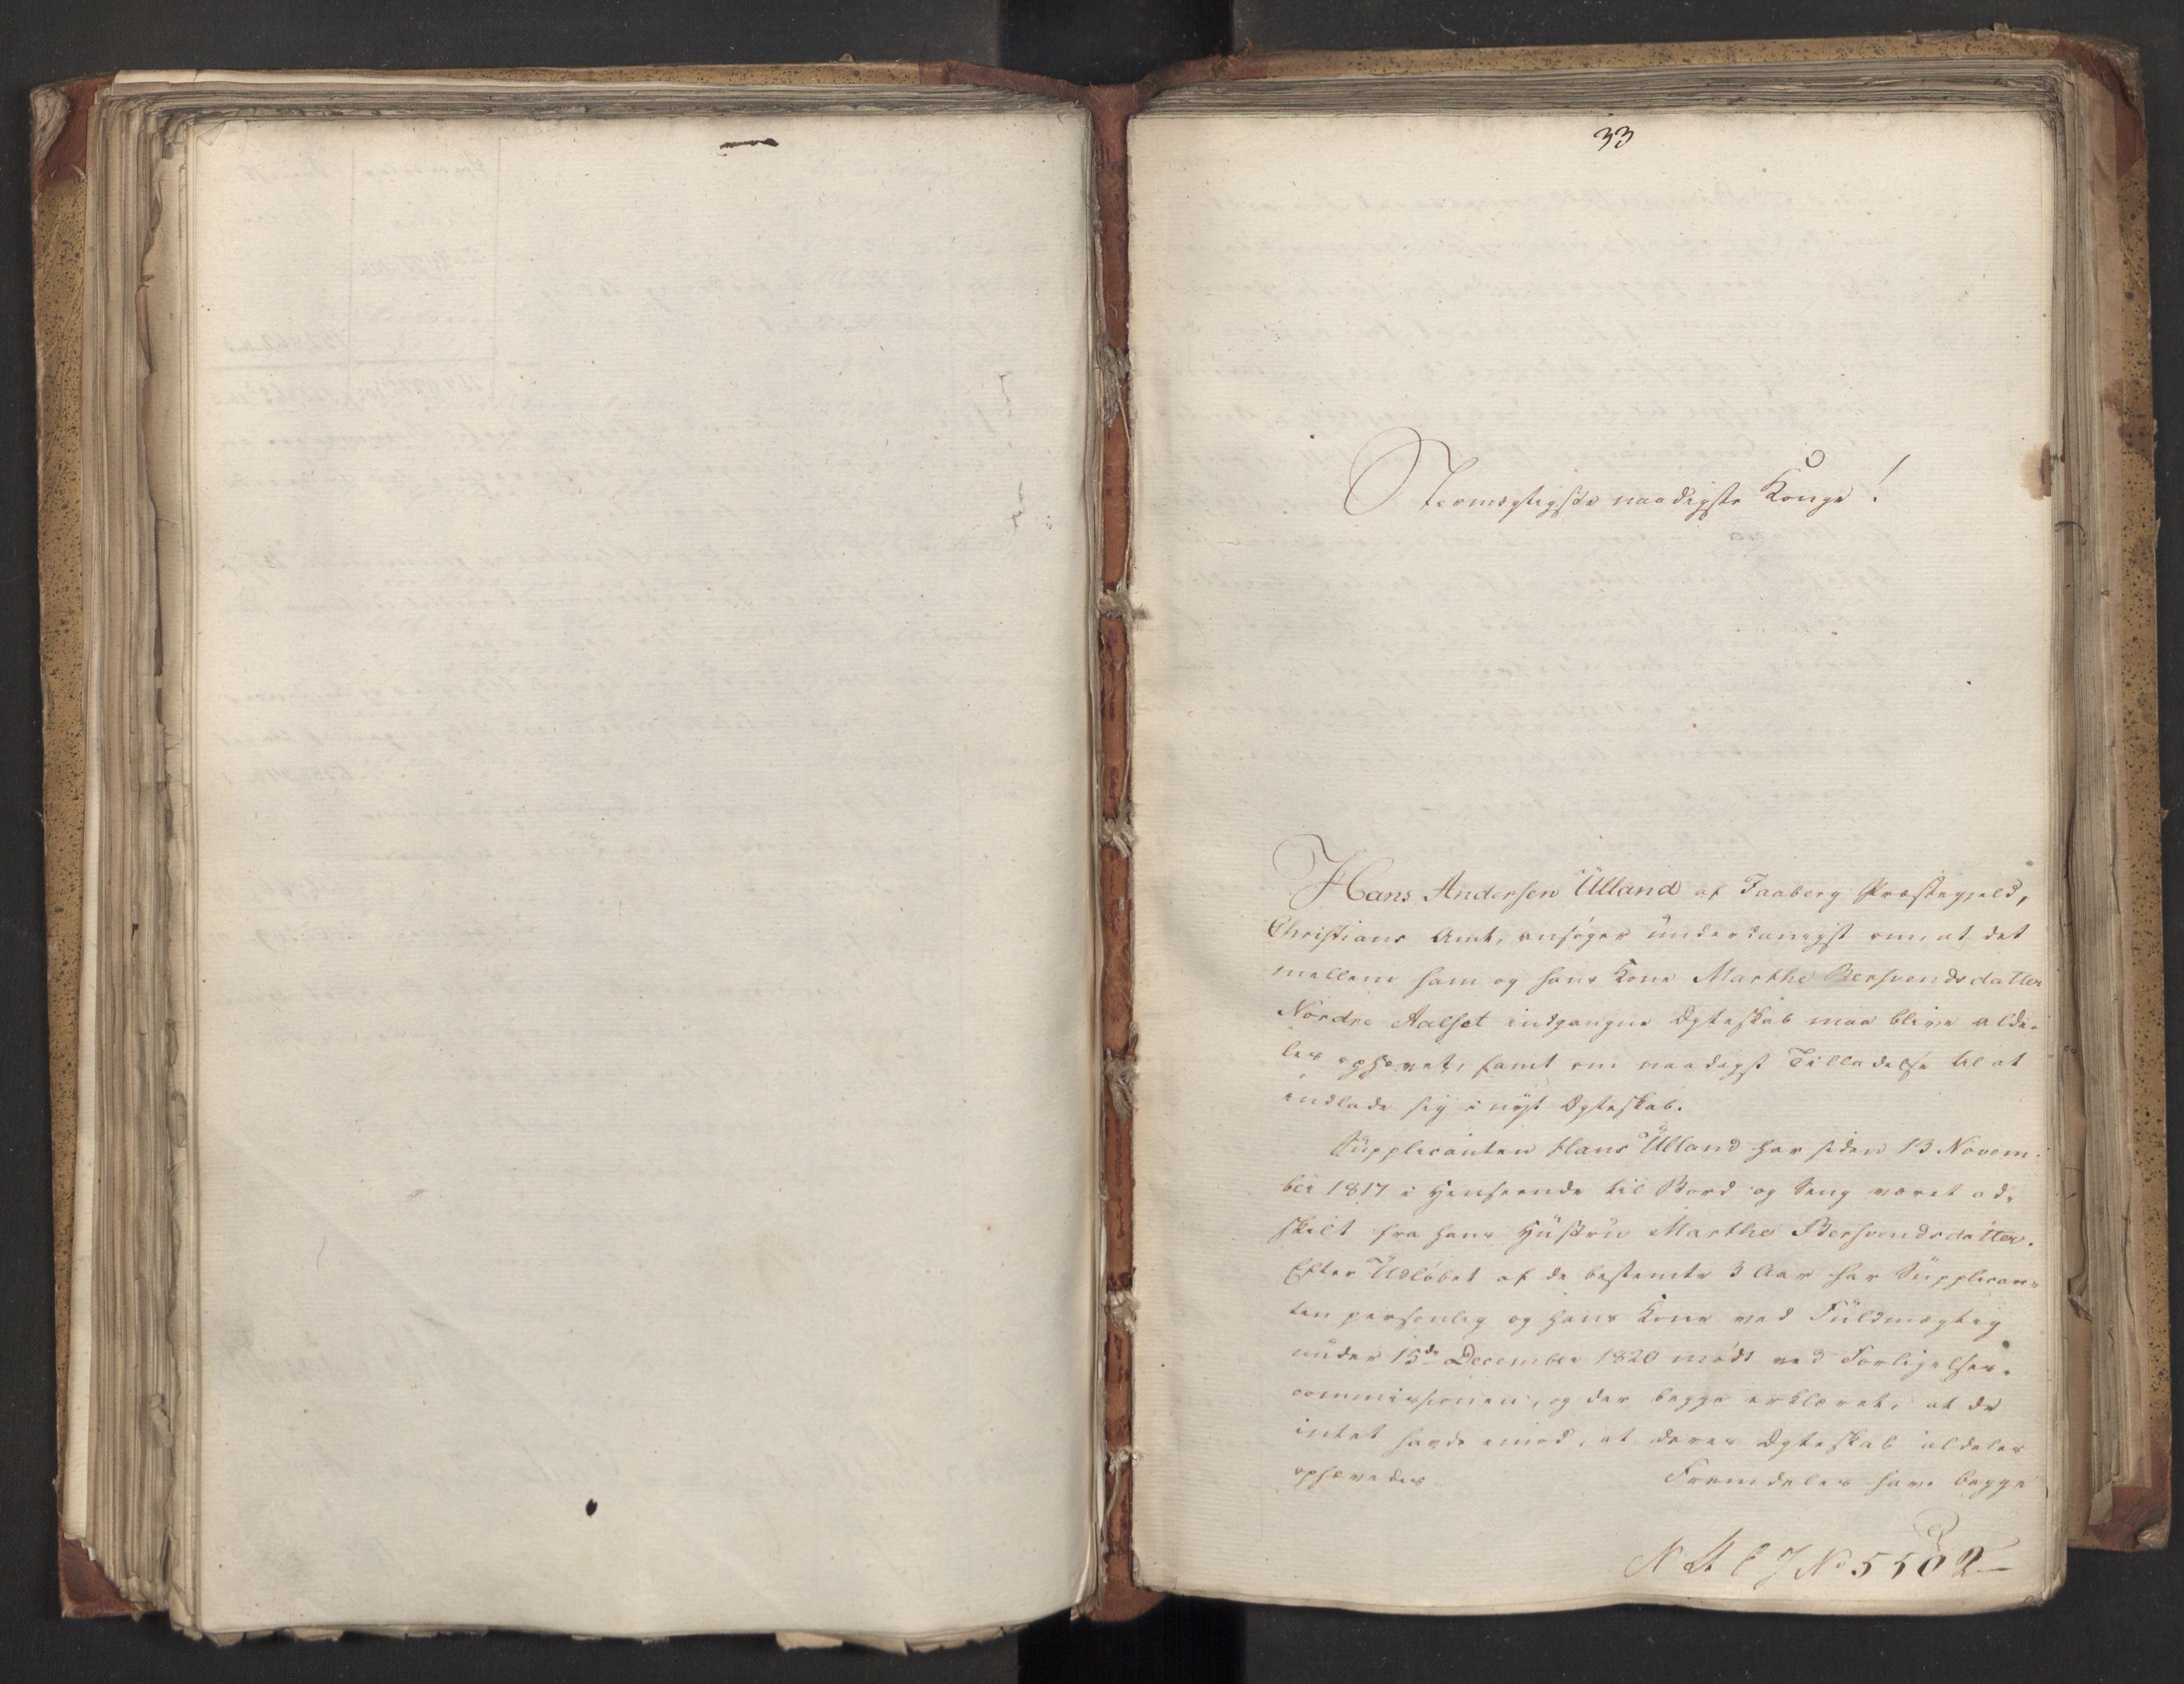 33
Stormægtigste naadigste Konge!
Hans Andersen Ülland af Faaberg Præstegjeld,
Christians Amt, ansøger ünderdanigst om, at det
mellem ham og hans Kone Marthe Bersvendsdatter
Nordre Aalset indgangne Ægteskab maa blive alde-
les ophævet, samt om naadigst Tilladelse til at
indlade sig i nyt Ægteskab.
Süpplicanten Hans Ülland har siden 13 Novem-
ber 1817 i Henseende til Bord og Seng været ad-
skilt fra hans Hüstrü Marthe Bersvendsdatter.
Efter Üdløbet af de bestemte 3 Aar har Süpplican-
ten personlig og hans Kone ved Füldmægtig
ünder 15de December 1820 mødt ved Forligelses-
commissionen, og der begge erklæret, at de
intet havde imod, at deres Ægteskab aldeles
ophævedes. Fremdeles have begge
No 5502